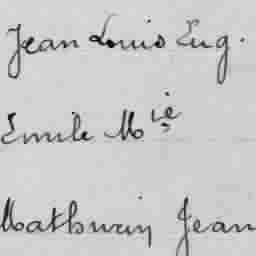 Jean Louis Eug.
Emile Mie
Mathurin Jean